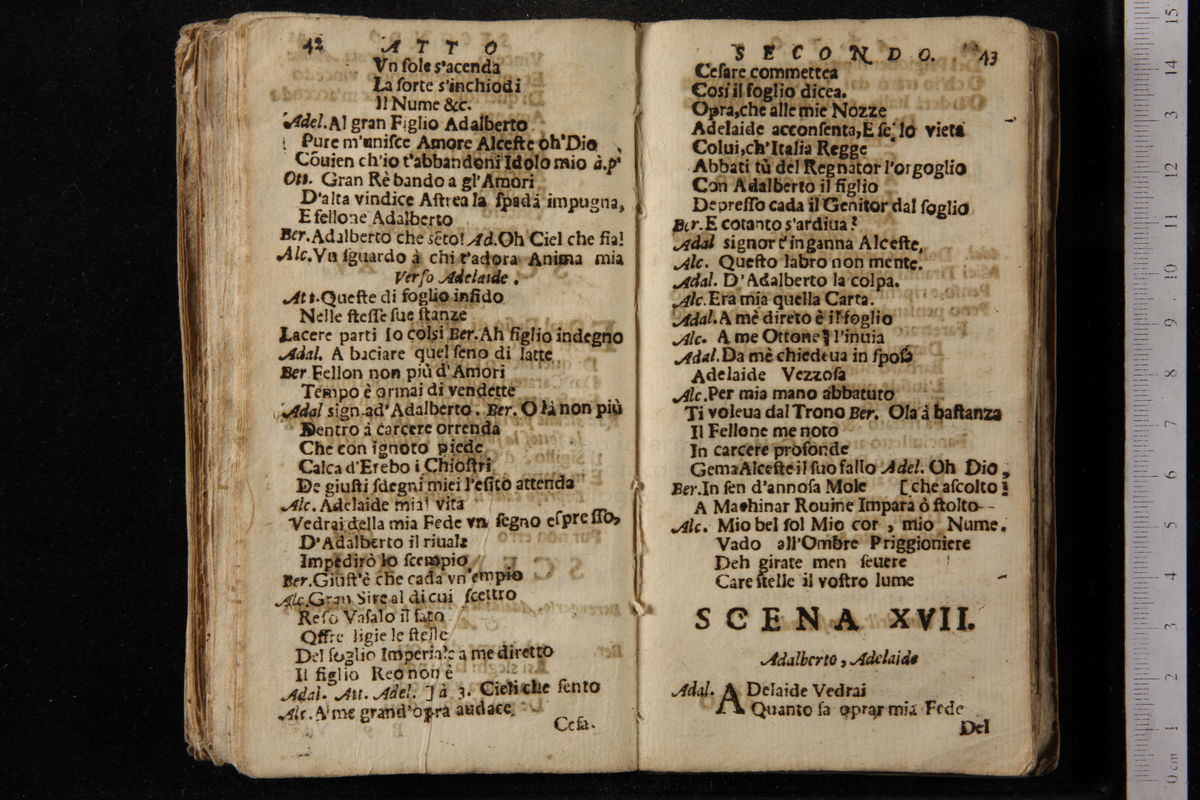 42 ATTO
Vn ſole s'acenda
La ſorte s'inchiodi
Il Nume &c.
Adel. Al gran Figlio Adalberto
Pure m'uniſce Amore Alceſte oh' Dio
Cōuien ch'io t'abbandoni Idolo mio à.pª
Ott. Gran Rè bando a gl'Amori
D'alta vindice Aſtrea la ſpada impugna,
E fellone Adalberto
Ber. Adalberto che sēto! Ad. Oh Ciel che fia!
Alc. Vn ſguardo à chi t'adora Anima mia
Verſo Adelaide.
Att. Queſte di foglio infido
Nelle ſteſſe ſue ſtanze
Lacere parti Io colsi Ber. Ah figlio indegno
Adal. A baciare quel ſeno di latte
Ber Fellon non più d'Amori
Tempo è ormai di vendette
Adal sign. ad'Adalberto. Ber. O là non più
Dentro à carcere orrenda
Che con ignoto piede
Calca d'Erebo i Chioſtri
De giuſti ſdegni miei l'eſito attenda
Alc. Adelaide mia! vita
Vedrai della mia Fede vn ſegno eſpreſſo,
D'Adalberto il riuale
Impedirò lo ſcempio
Ber. Giuſt'è che cada vn'empio
Alc. Gran Sire al di cui ſcettro
Reſo Vaſalo il fato
Offre ligie le ſtelle
Del ſoglio Imperiale a me diretto
Il figlio Reo non è
Adal. Att. Adel. ] à 3. Cieli che ſento
Alc. A me grand'opra audace
Ceſa.
SECONDO. 43
Ceſare commettea
Cosi il foglio dicea.
Opra, che alle mie Nozze
Adelaide acconſenta, E ſe lo vieta
Colui, ch'Italia Regge
Abbati tù del Regnator l'orgoglio
Con Adalberto il figlio
Depreſſo cada il Genitor dal ſoglio
Ber. E cotanto s'ardiua?
Adal signor t'inganna Alceſte,
Alc. Queſto labro non mente.
Adal. D'Adalberto la colpa.
Alc. Era mia quella Carta.
Adal. A mè direto è il foglio
Alc. A me Ottone l'inuia
Adal. Da mè chiedeua in ſpoſa
Adelaide Vezzoſa
Alc. Per mia mano abbatuto
Ti voleua dal Trono Ber. Ola à baſtanza
Il Fellone me noto
In carcere profonde
Gema Alceſte il ſuo fallo Adel. Oh Dio,
Ber. In ſen d'annoſa Mole [che aſcolto!
A Machinar Rouine Impara ò ſtolto
Alc. Mio bel ſol Mio cor, mio Nume.
Vado all'Ombre Priggioniere
Deh girate men ſeuere
Care ſtelle il voſtro lume
SCENA XVII.
Adalberto, Adelaide
Adal. ADelaide Vedrai
Quanto ſa oprar mia Fede
Del